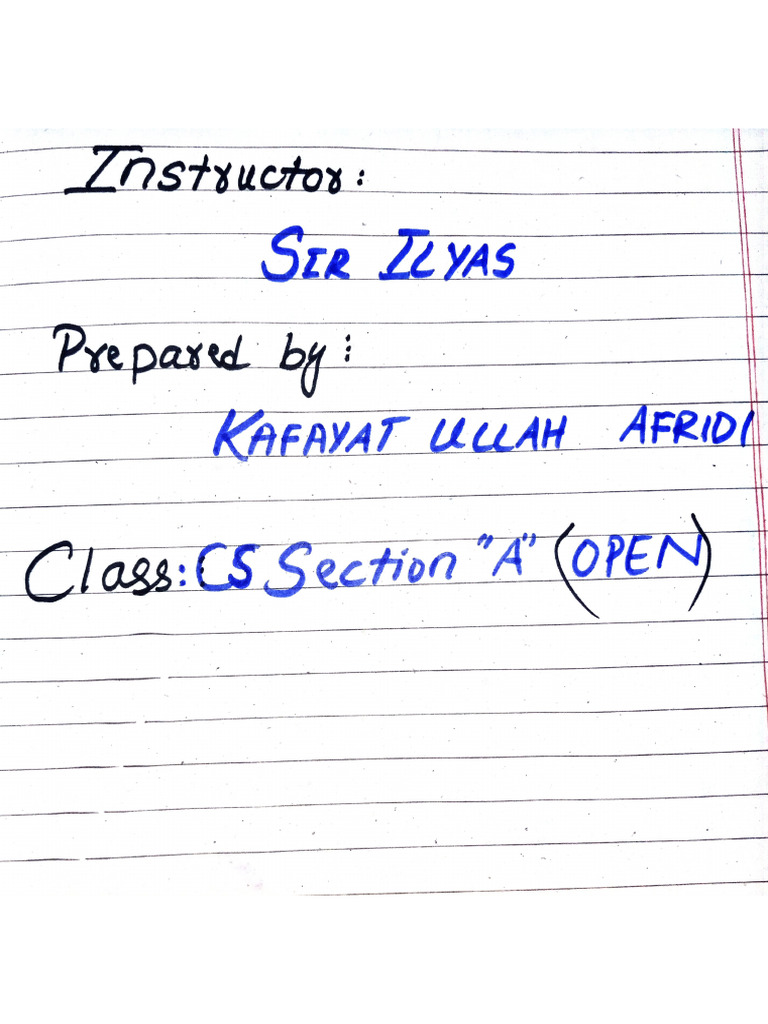 Instructor:
SIR ILYAS
Prepared by:
KAFAYAT ULLAH AFRIDI
Class: CS Section "A" (OPEN)